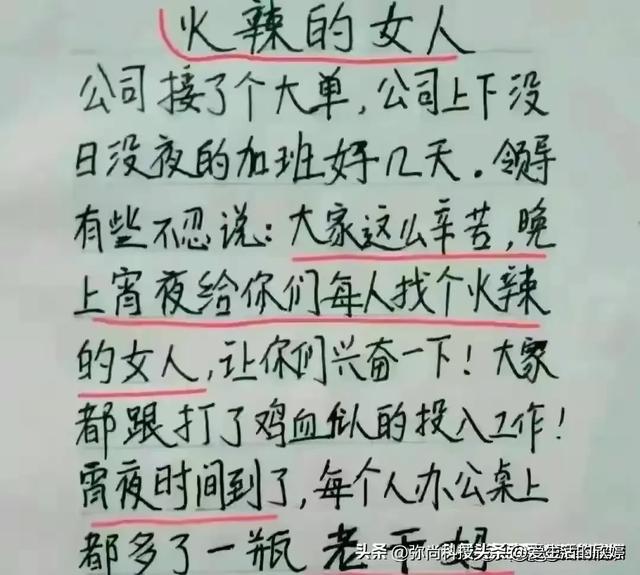 火辣的女人
公司接了个大单,公司上下没
日没夜的加班好几天。领导
有些不忍说:大家这么辛苦,晚
上宵夜给你们每人找个火辣
的女人,让你们兴奋一下!大家
都跟打了鸡血似的投入工作!
宵夜时间到了,每个人办公桌上
都多了一瓶老干妈
头条 @弥尚科技头条 @爱生活的欣嬷